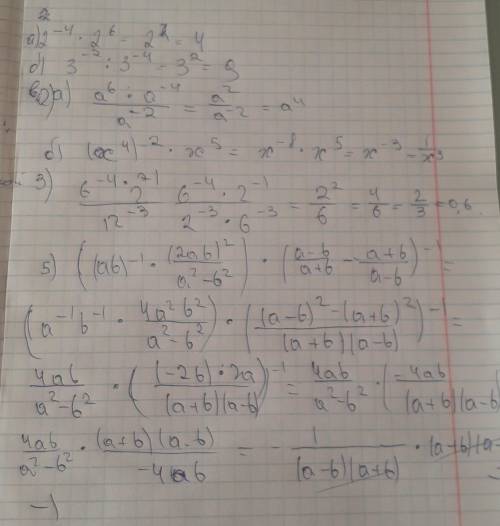 2
а) 2⁻⁴ · 2⁶ = 2² = 4
б) 3⁻² : 3⁻⁴ = 3² = 9
2) а) (a⁶ · a⁻⁴)/a⁻² = a²/a⁻² = a⁴
б) (x⁴)⁻² · x⁵ = x⁻⁸ · x⁵ = x⁻³ = 1/x³
3) (6⁻⁴ · 2⁻¹)/12⁻³ (6⁻⁴ · 2⁻¹)/(2⁻³ · 6⁻³) = 2²/6 = 4/6 = 2/3 = 0,6
5) ((ab)⁻¹ · (2ab)²/(a²-b²)) · ((a-b)/(a+b) - (a+b)/(a-b))⁻¹ =
(a⁻¹b⁻¹ · 4a²b²/(a²-b²)) · (((a-b)² - (a+b)²)/((a+b)(a-b)))⁻¹ =
4ab/(a²-b²) · ((-2b) · 2a/((a+b)(a-b)))⁻¹ = 4ab/(a²-b²) · (-4ab/((a+b)(a-b)
4ab/(a²-b²) · (a+b)(a-b)/(-4ab) = - 1/((a-b)(a+b)) · (a+b)(a-
-1